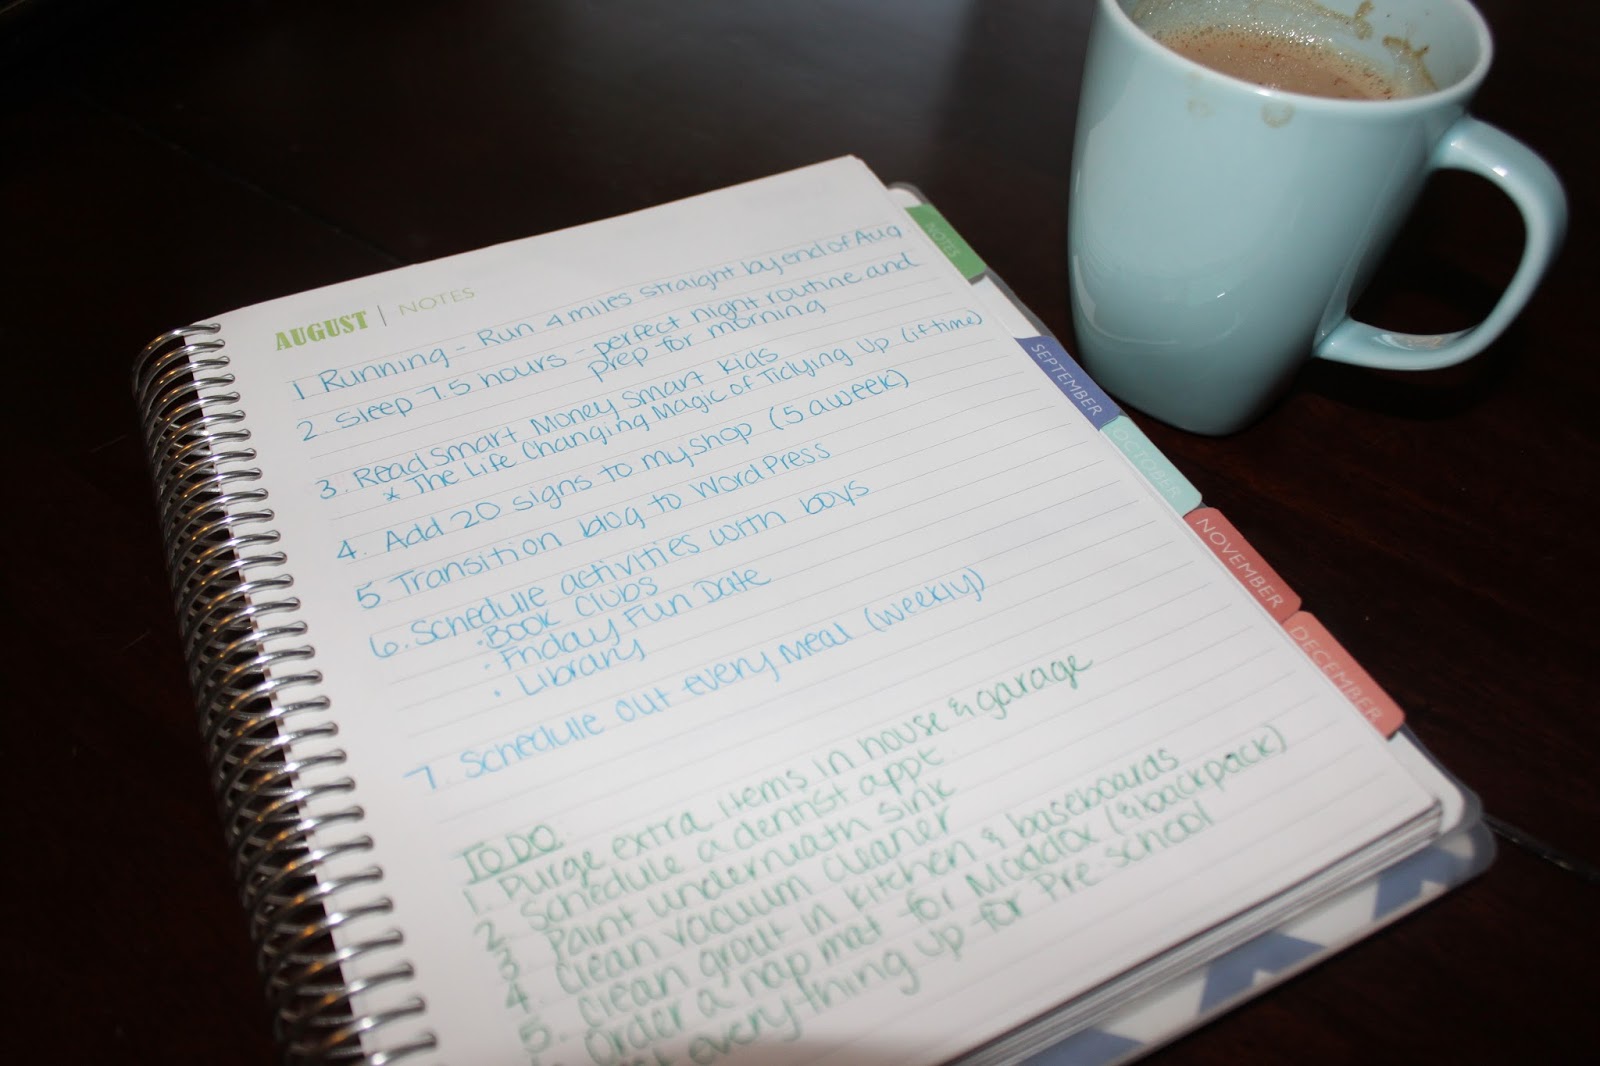 AUGUST | NOTES
1 Running - Run 4 miles straight by end of Aug.
2. Sleep 7.5 hours - perfect night routine and
prep for morning
3. Read Smart Money Smart Kids
* The Life Changing Magic of Tidying Up (if time)
4. Add 20 signs to my shop (5 a week)
5. Transition blog to WordPress
6. Schedule activities with boys
· Book Clubs
· Friday Fun Date
· Library
7. Schedule out every meal (weekly)
TO DO:
1. Purge extra items in house & garage
2. Schedule a dentist appt
3. Paint underneath sink
4. Clean vacuum cleaner
5. Clean grout in kitchen & baseboards
Order a nap mat for Maddox (& backpack)
everything up for Pre-School
NOTES
SEPTEMBER
OCTOBER
NOVEMBER
DECEMBER